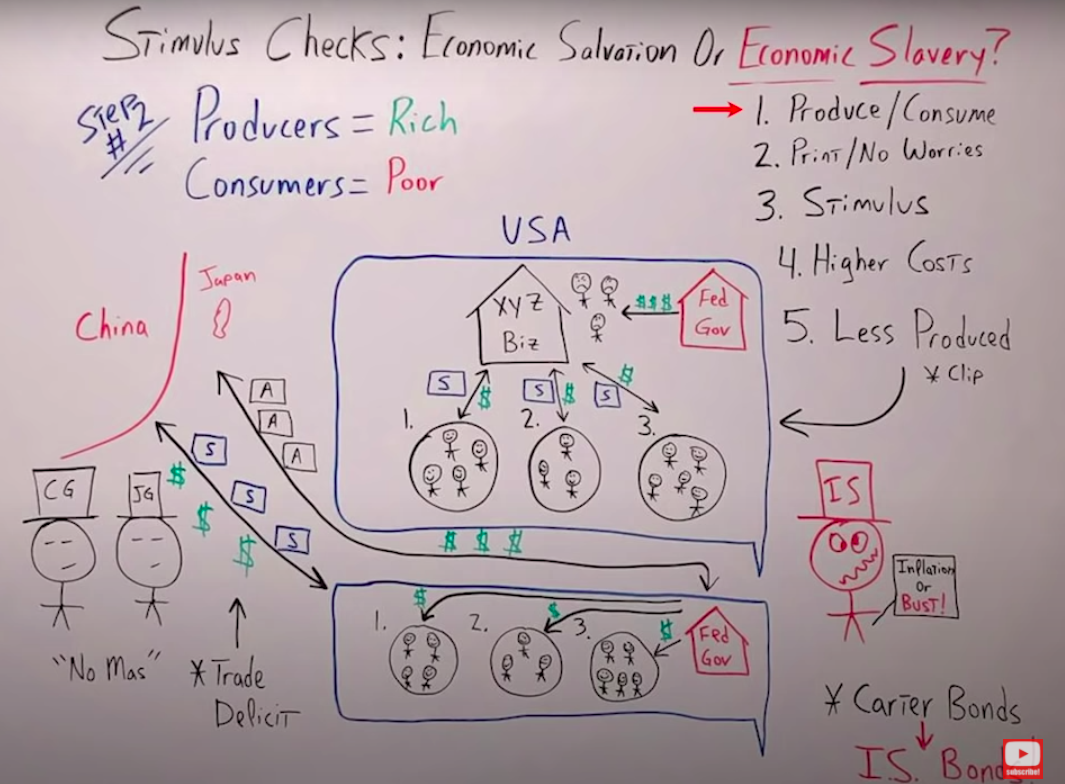 Stimulus Checks: Economic Salvation Or Economic Slavery?
Step # 2
Producers = Rich
Consumers = Poor
1. Produce/Consume
2. Print/No Worries
3. Stimulus
4. Higher Costs
5. Less Produced
* Clip
USA
China
Japan
XYZ
Biz
$$$
Fed
Gov
S
$
S
$
S
$
1.
2.
3.
A
A
A
S
S
S
$
$
$
CG
JG
"No Mas"
* Trade
Deficit
$ $ $
1.
2.
3.
$
$
$
Fed
Gov
IS
Inflation
Or
Bust!
* Carter Bonds
I.S. Bonds
subscribe!